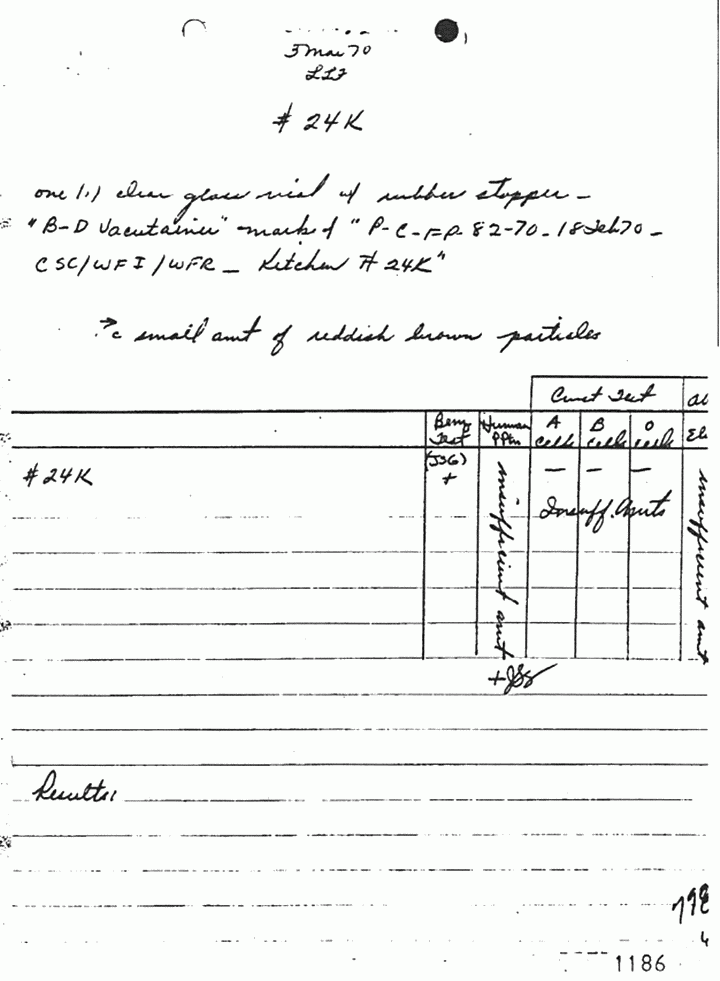 3 Mar 70
# 24K
one (1) clear glass vial w/ rubber stopper -
"B-D Vacutainer" marked "P-C-FP-82-70-18Feb70-
CSC/WFI/WFR - Kitchen # 24K"
c small amt of reddish brown particles
Crust Test
Benz Test
Human PPtn
A cells
B cells
O cells
# 24K
(JSG)
+
insufficient amt
— — —
Insuff. Amts
insufficient amt
+
Results:
1186